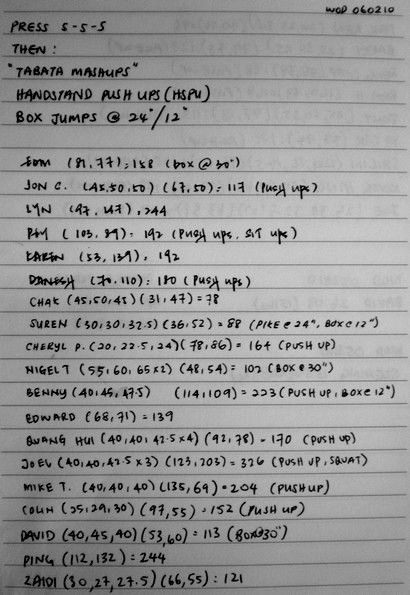 WOD 060210
PRESS 5-5-5
THEN:
"TABATA MASHUPS"
HANDSTAND PUSH UPS (HSPU)
BOX JUMPS @ 24"/12"
EDM (81,77): 158 (BOX @ 30")
JON C. (45,50,50) (67,50): 117 (PUSH UPS)
LYN (97,147): 244
PAM (103,89): 192 (PUSH UPS, SIT UPS)
KAREN (53,139): 192
DANESH (70,110): 180 (PUSH UPS)
CHAK (45,50,45) (31,47) = 78
SUREN (30,30,32.5) (36,52) = 88 (PIKE @ 24", BOX @ 12")
CHERYL P. (20,22.5,24) (78,86) = 164 (PUSH UP)
NIGEL T (55,60,65x2) (48,54) = 102 (BOX @ 30")
BENNY (40,45,47.5) (114,109) = 223 (PUSH UP, BOX @ 12")
EDWARD (68,71) = 139
QUANG HUI (40,40,42.5x4) (92,78) - 170 (PUSH UP)
JOEL (40,40,42.5x3) (123,203) = 326 (PUSH UP, SQUAT)
MIKE T. (40,40,40) (135,69) = 204 (PUSH UP)
COLIN (25,29,30) (97,55) = 152 (PUSH UP)
DAVID (40,45,40) (53,60) = 113 (BOX@30")
PING (112,132) = 244
ZAIDI (30,27,27.5) (66,55): 121